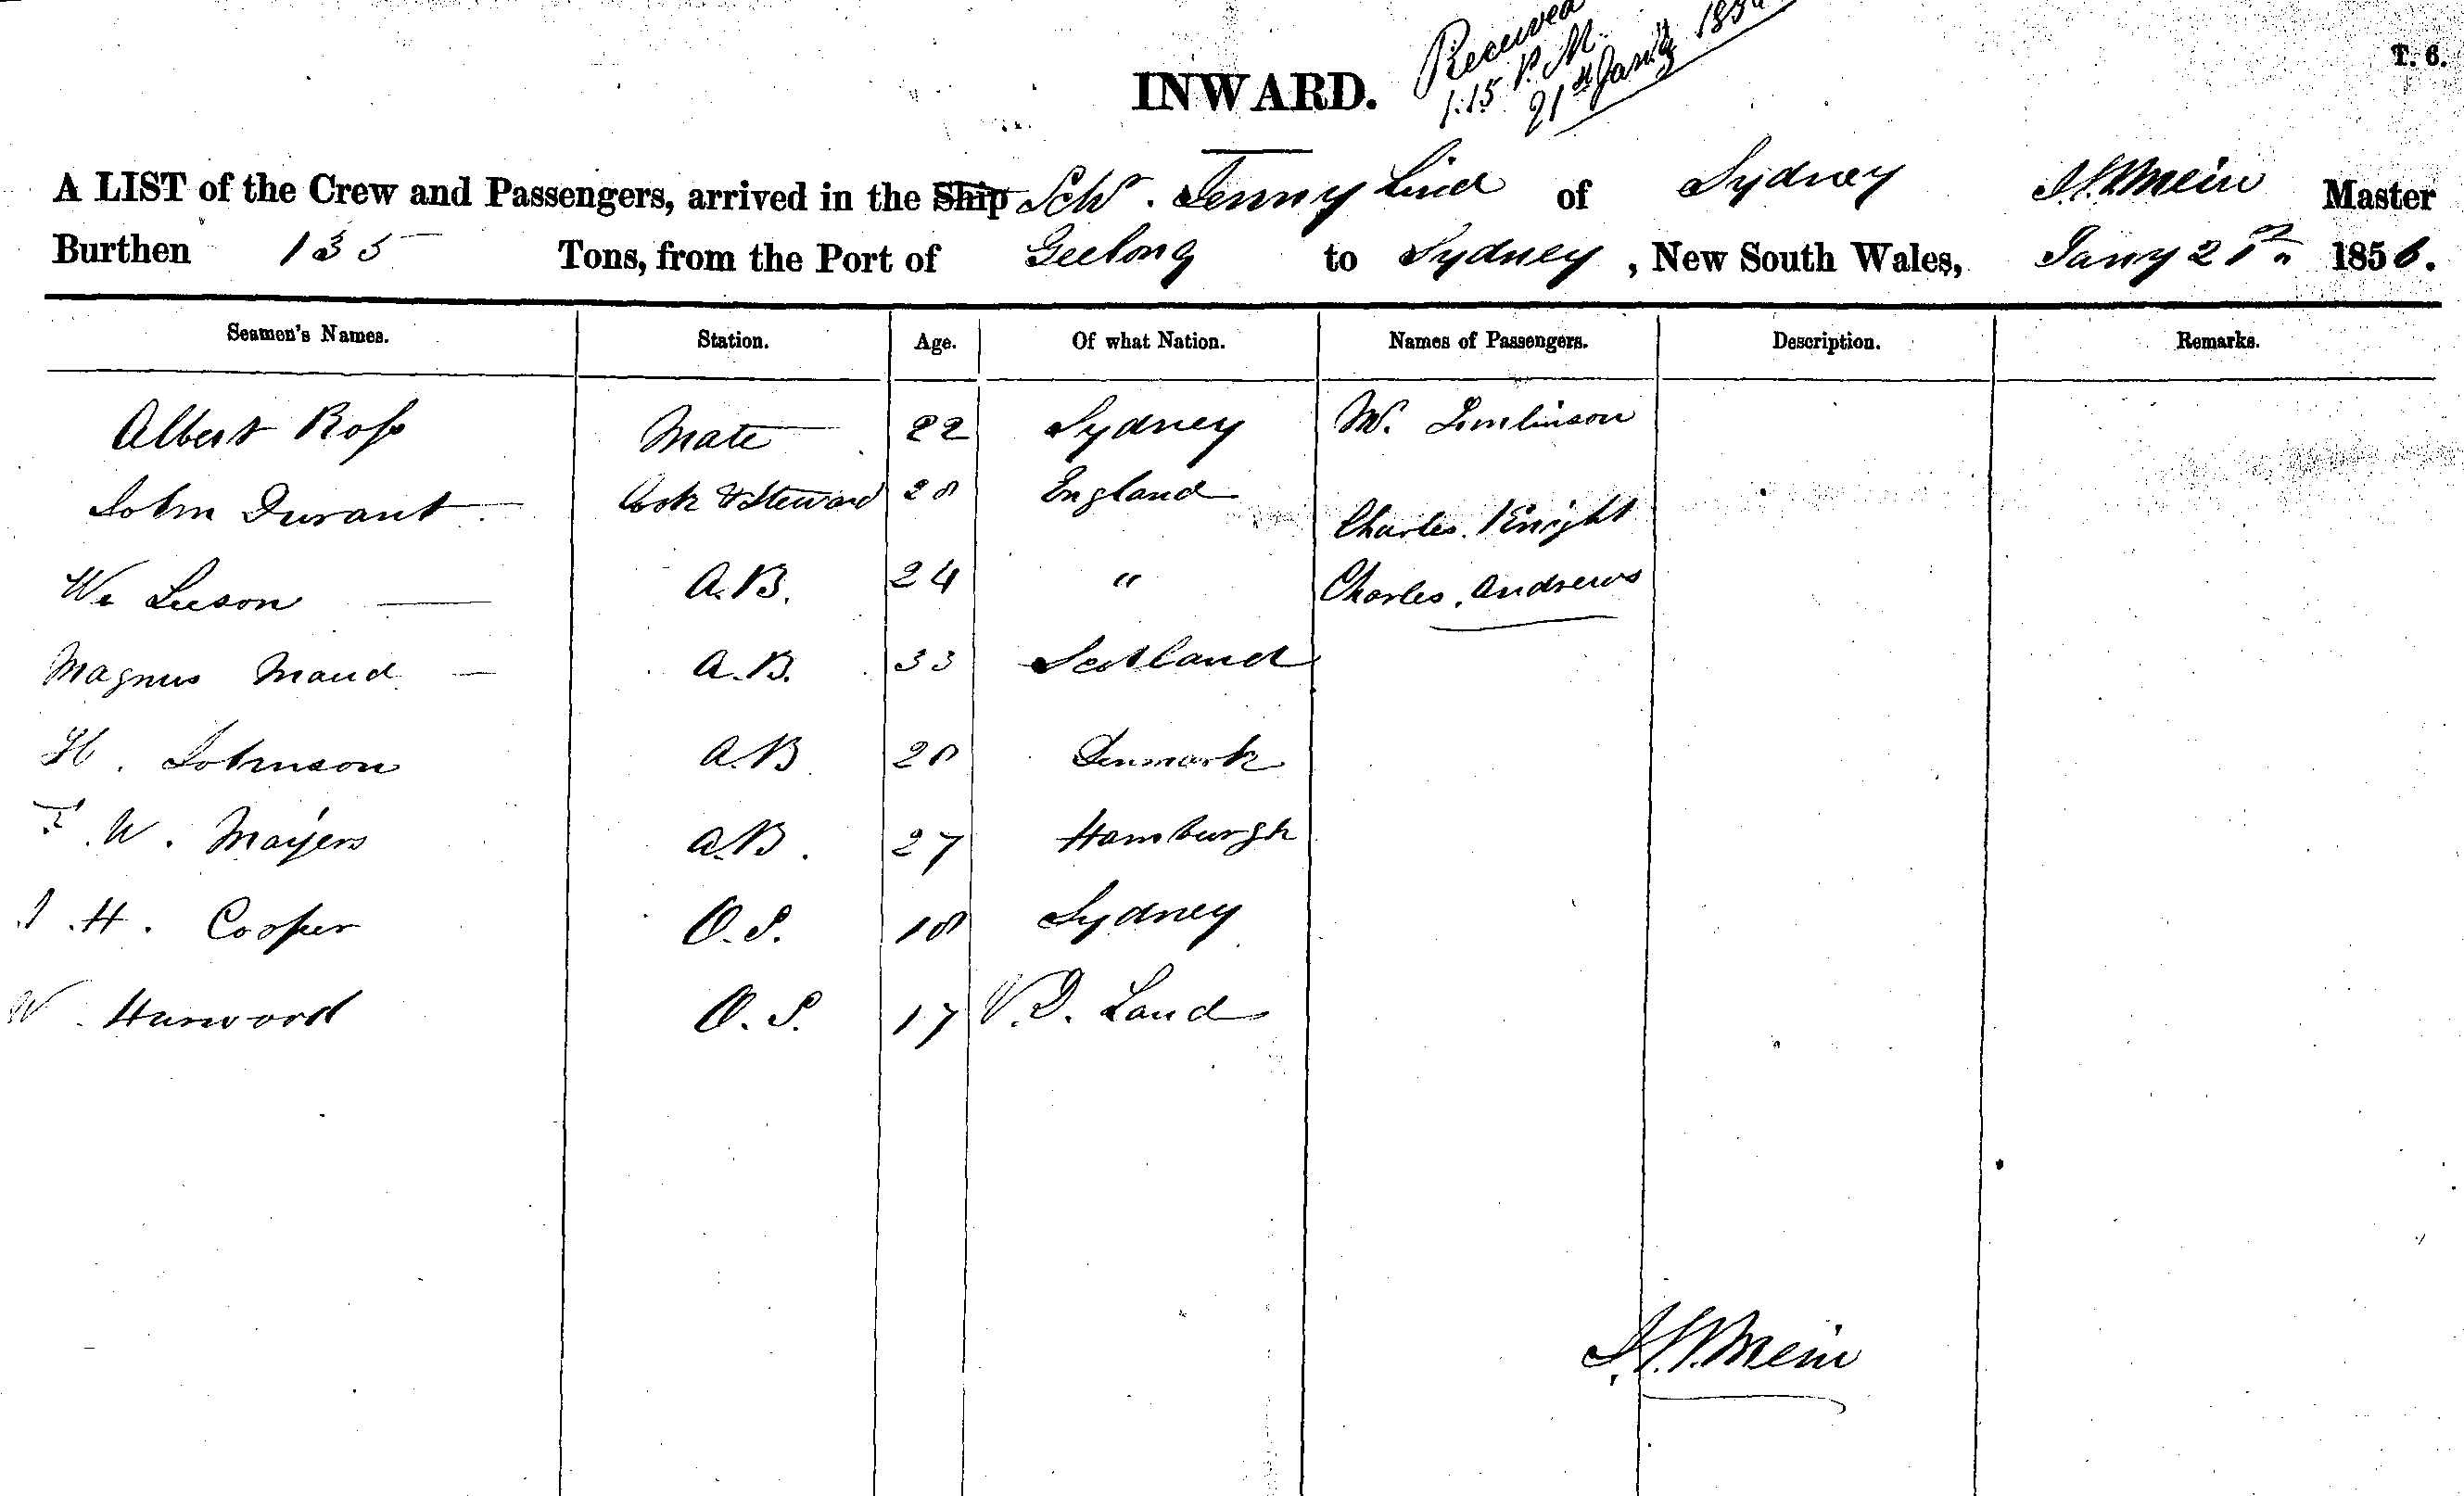 Received
1.15 P.M.
21st Jany 1856
T. 6.
INWARD.
A LIST of the Crew and Passengers, arrived in the Ship Schr. Jenny Lind of Sydney J.S. Mein Master
Burthen 135 Tons, from the Port of Geelong to Sydney, New South Wales, Jany 21st 1856.
Seamen's Names. Station. Age. Of what Nation. Names of Passengers. Description. Remarks.
Albert Ross Mate 22 Sydney W. Tomlinson
John Durant Cook & Steward 28 England Charles Knight
Wm Leeson A.B. 24 " Charles Andrews
Magnus Maud A.B. 33 Scotland
H. Johnson A.B 28 Denmark
F. W. Mayers A.B. 27 Hamburgh
J. H. Cooper O.S. 18 Sydney
W. Harwood O.S. 17 V.D. Land
J.S. Mein